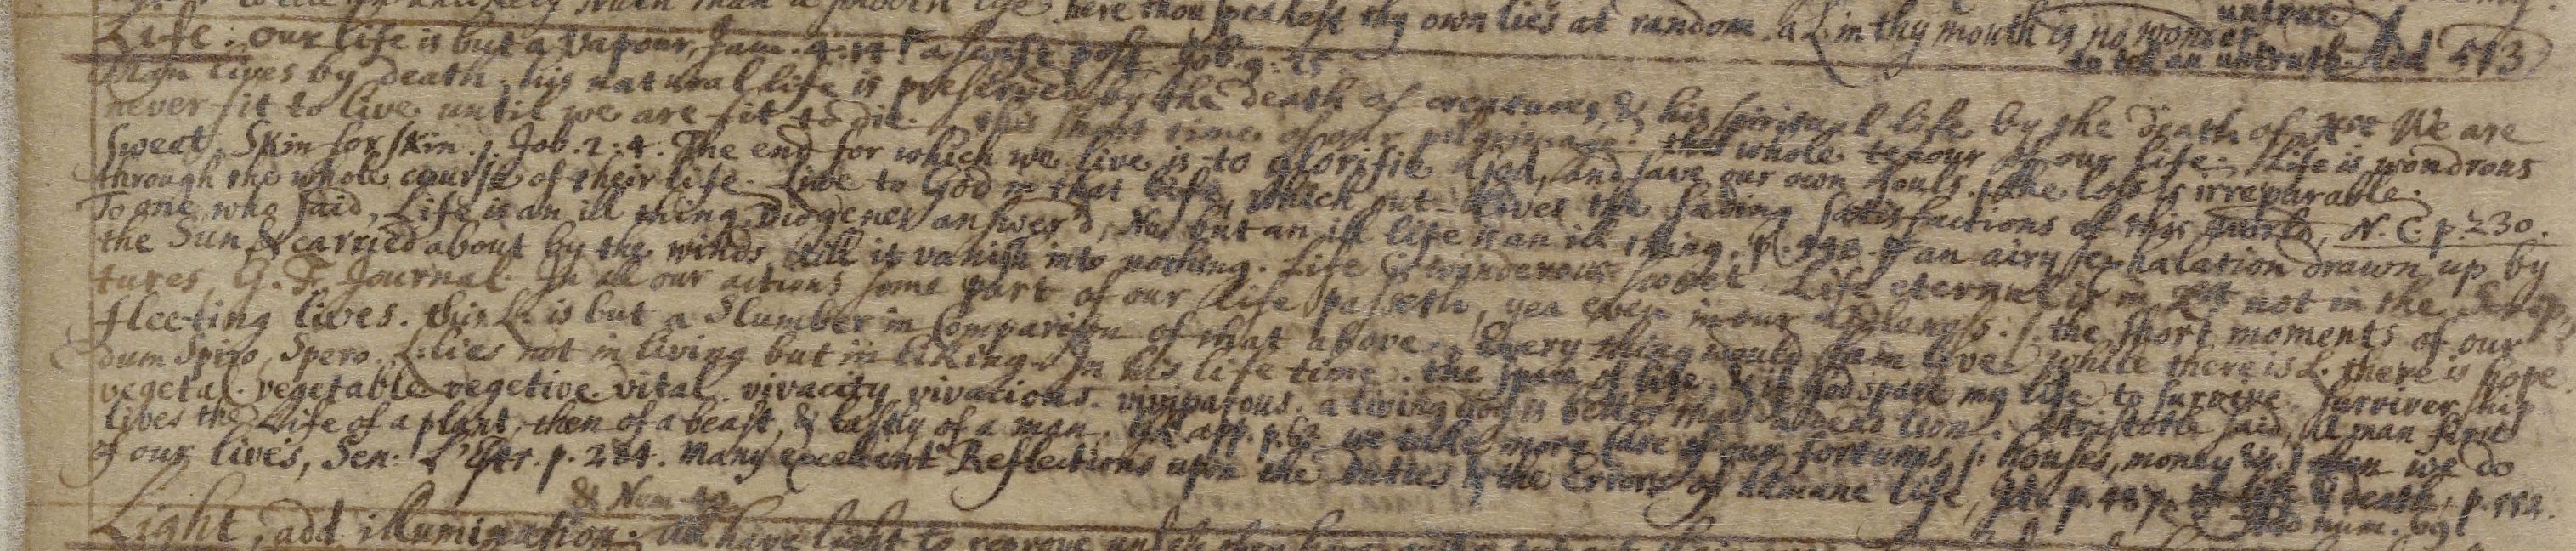 here thou speakest thy own lies at random. a L. in thy mouth is no wonder
untrue
to tell an untruth. Add 513
Life. our life is but a Vapour, Jam. 4:14. a swift post Job. 9:25
Man lives by death, his natural life is preserved by the death of creatures, & his spiritual life by the death of Xst We are
never fit to live until we are fit to die. this short time of our pilgrimage. the whole tenour of our life. Life is wondrous
sweet, Skin for skin. Job. 2:4. The end for which we live is to glorifie God, and save our own souls. the loss is irreparable.
through the whole course of their life. Live to God in that life, which out-lives the fading satisfactions of this world, N. C. p. 230.
To one who said, Life is an ill thing, Diogenes answer'd, No, but an ill life is an ill thing, an airy exhalation drawn up by
the Sun & carried about by the winds till it vanish into nothing. Life is wonderous sweet. Life eternal is in Xst not in the Scrip-
tures, G. F. Journal. In all our actions some part of our life passeth, yea even in our the short moments of our
fleeting lives. this L. is but a Slumber in comparison of that above. Every thing would fain live while there is L. there is hope
dum Spiro, Spero. L. lies not in living but in liking. In his life time. the space of life. if God spare my life to survive. survivership
vegetal. vegetable vegetive. vital. vivacity vivacious. viviparous. a living dog is better than a dead lion. Aristotle said, A man first
lives the Life of a plant, then of a beast, & lastly of a man. p. 62 we take more care of our fortunes /: houses, money &c.) than we do
of our lives, Sen: L'Estr. p. 284. Many excellent Reflections upon the Duties & the Errors of humane life, p. 487. of life & death, p. 552.
& Num. 40. Add num. 69
Light, add illumination. all have light to reprove